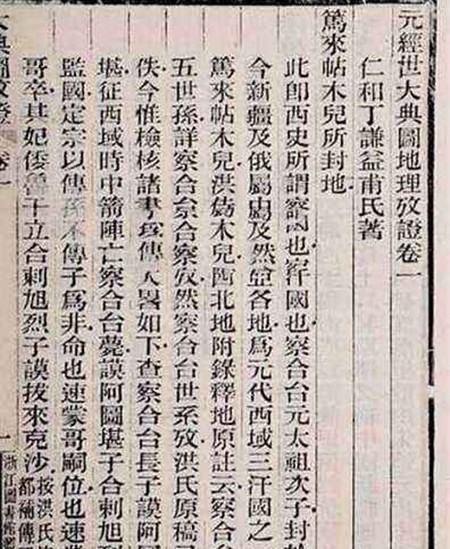 元經世大典圖地理攷證卷一
仁和丁謙益甫氏著
篤來帖木兒所封地
此卽西史所謂察合也 國也察合台元太祖次子封
今新疆及俄屬 及然 各地爲元代西域三汗國之
篤來帖木兒洪 木兒西北地附錄釋地原註云察合台
五世孫詳察合台 察合 攷然察合台世系攷洪氏原稿已
佚今惟檢核諸書爲傳 畧如下查察合台長子謨阿圖
堪征西域時中箭陣亡察合台薨謨阿圖堪子合剌旭烈
監國定宗以傳孫不傳子爲非命也速蒙哥嗣位也速蒙
哥卒其妃倭魯干立合剌旭烈子謨拔來克沙 按洪氏 都補傳
大典圖攷證 卷一
一
浙江圖書館